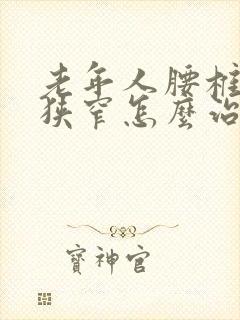 老年人腰椎
狹窄怎麼治
寶神官